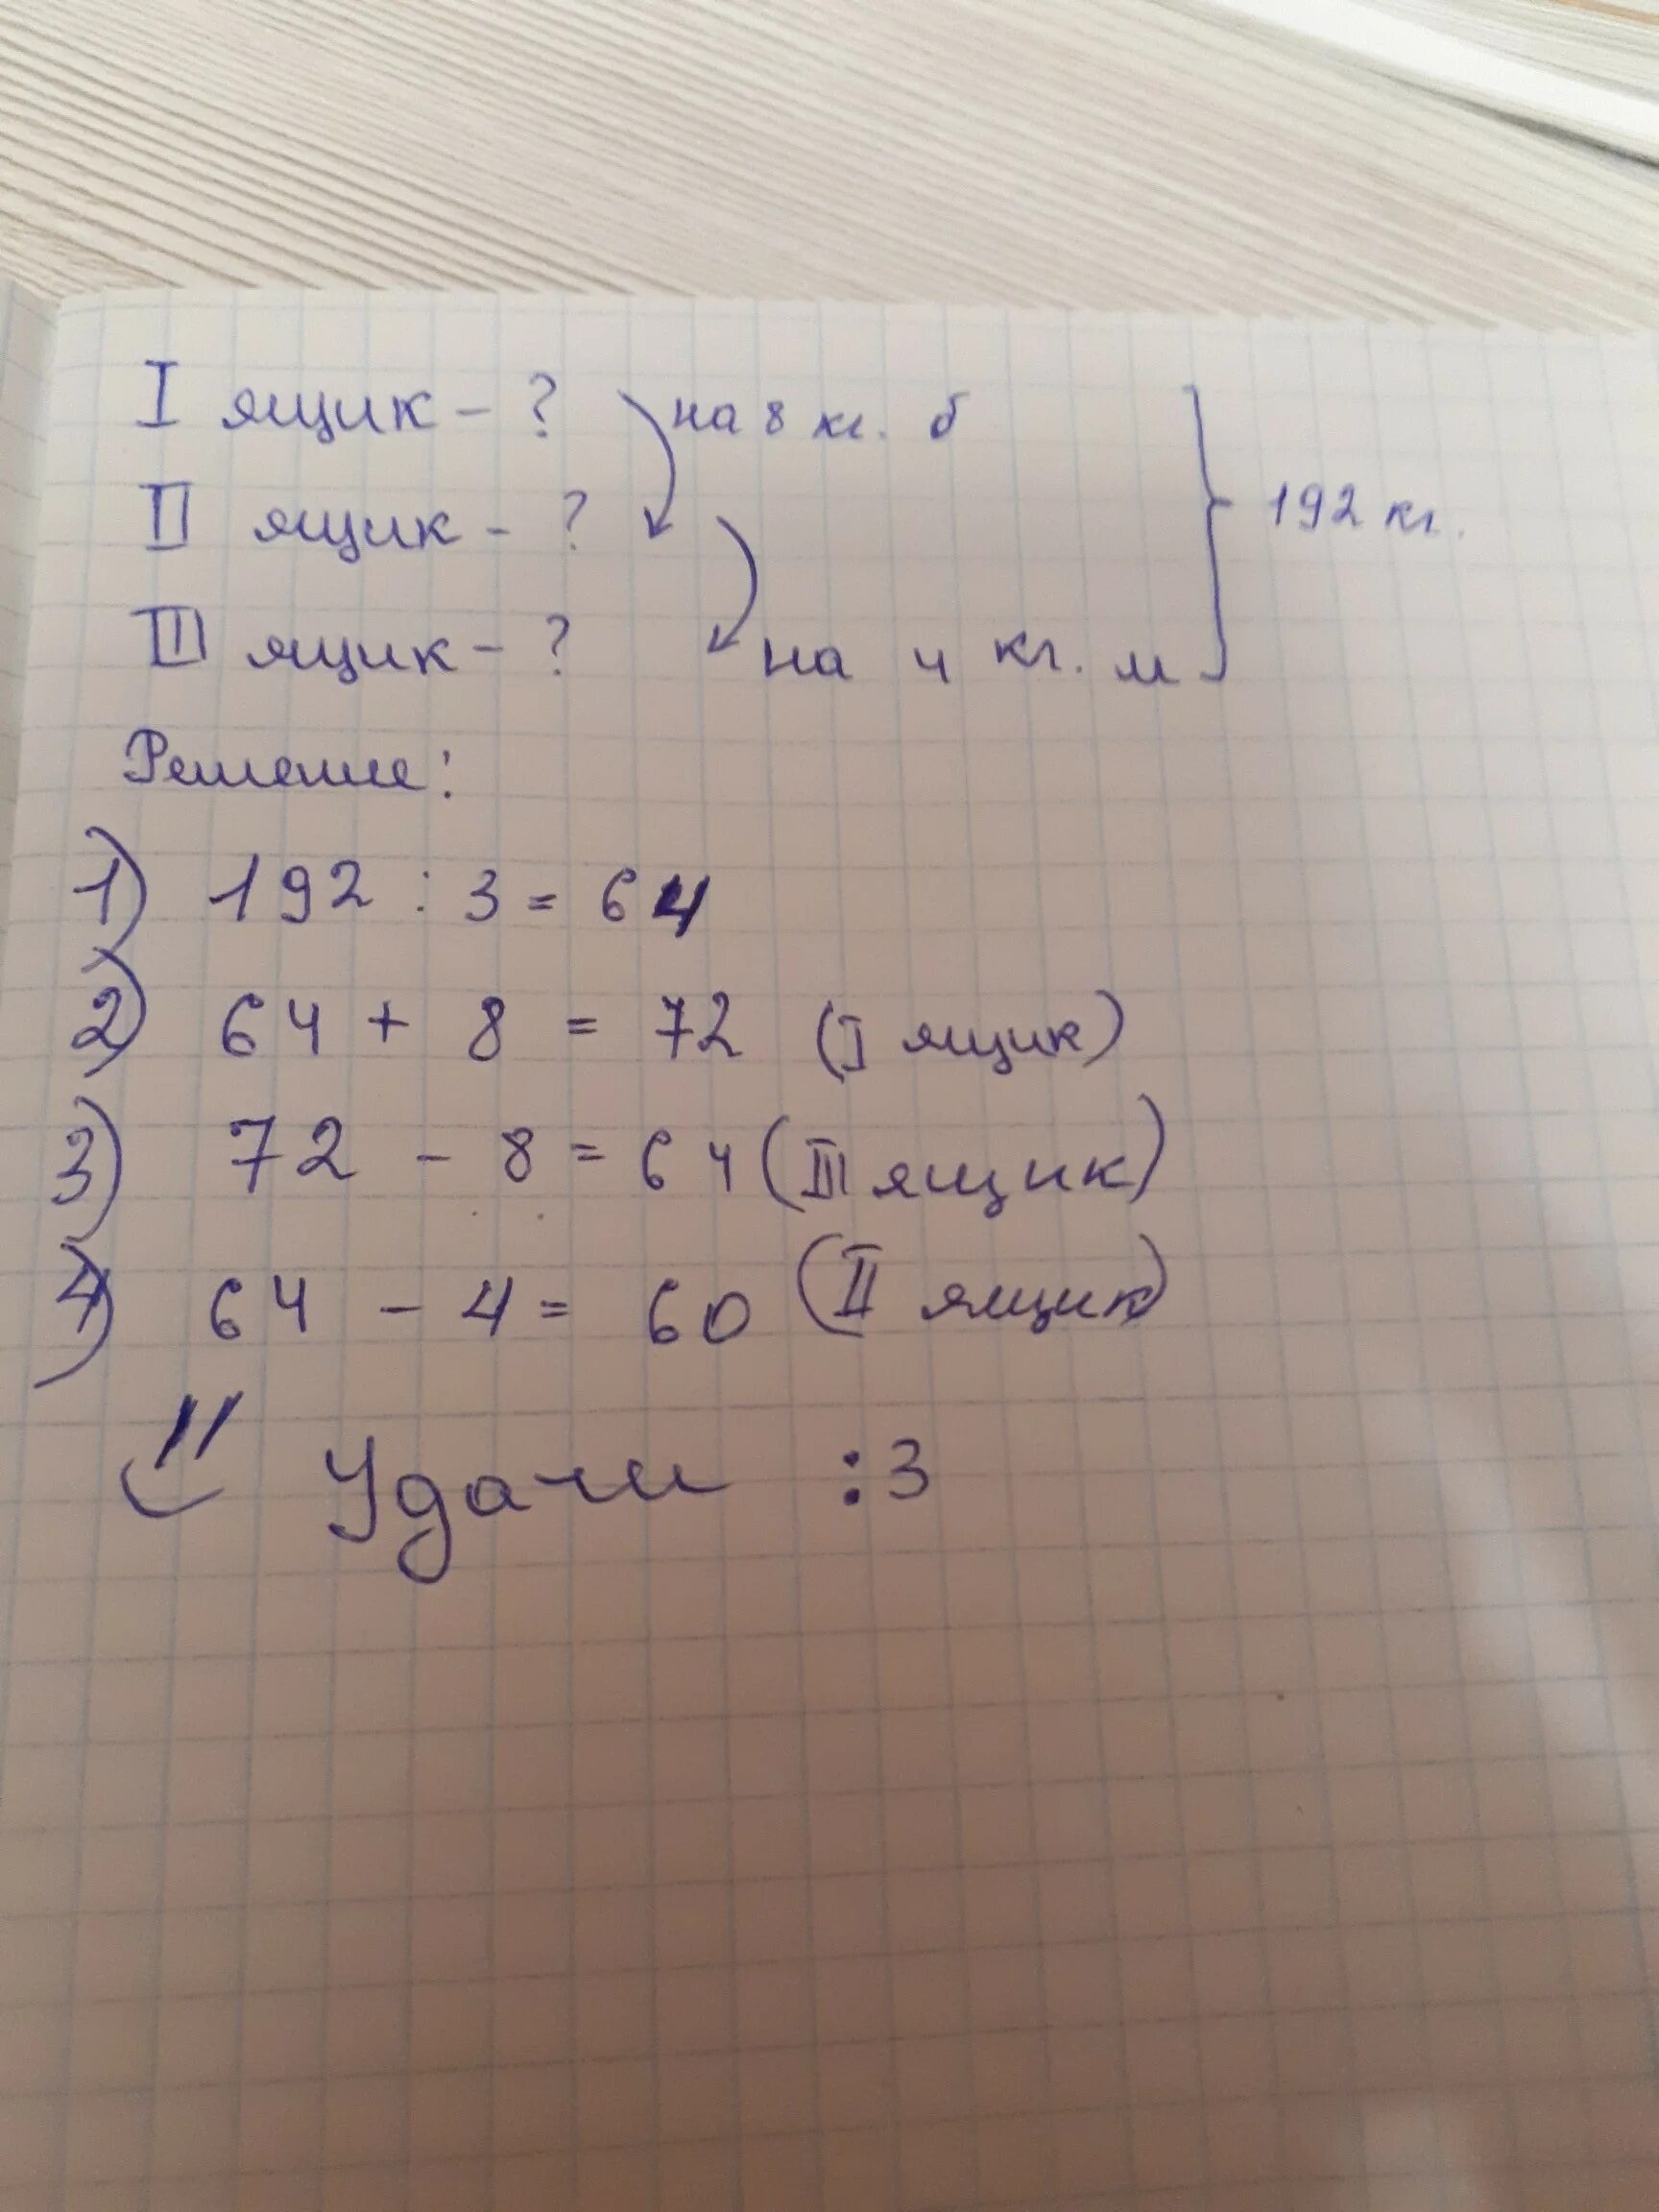 I ящик - ? на 8 кг. б
II ящик - ? 192 кг.
III ящик - ? на 4 кг. м
Решение:
1) 192 : 3 = 64
2) 64 + 8 = 72 (I ящик)
3) 72 - 8 = 64 (III ящик)
4) 64 - 4 = 60 (II ящик)
Удачи :3